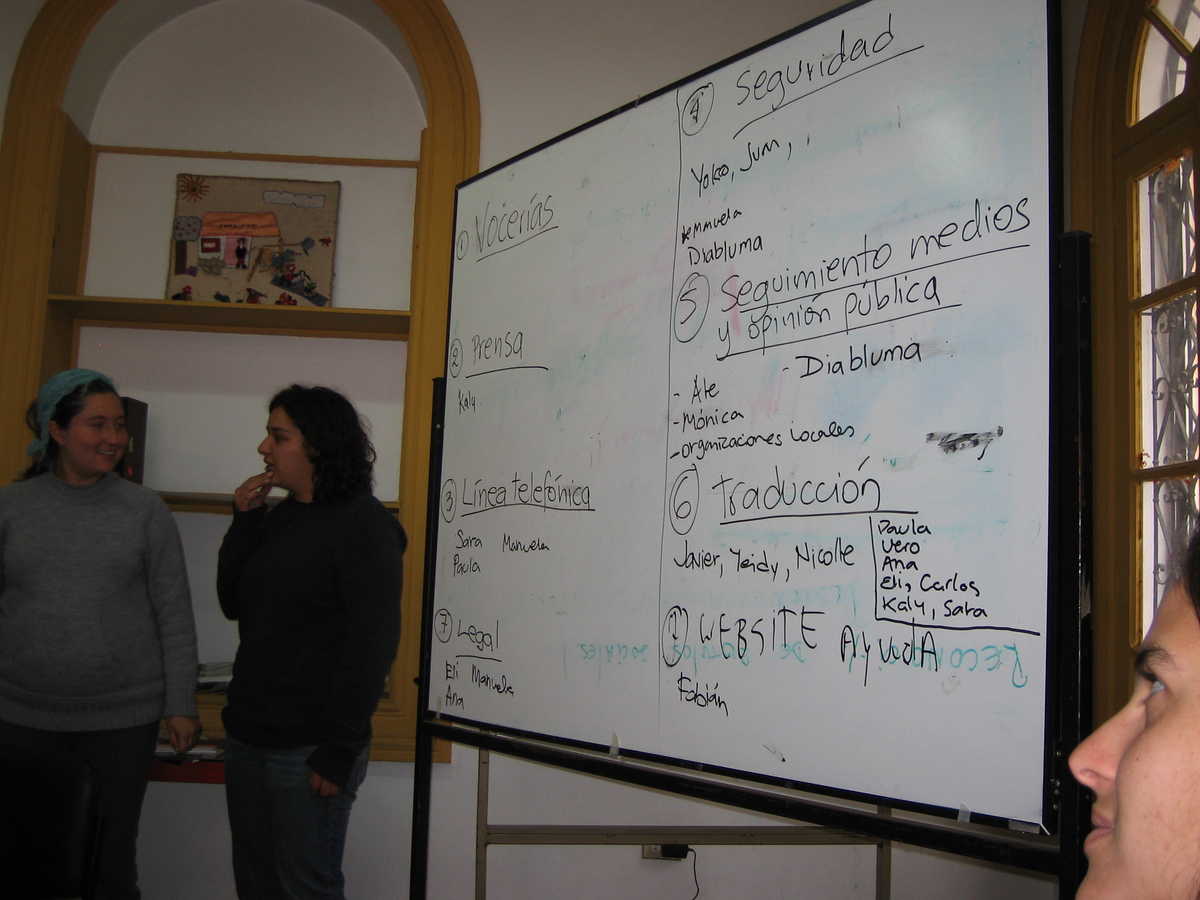 ① Vocerías
② Prensa
Kaly
③ Línea telefónica
Sara Manuela
Paula
⑦ Legal
Eli Manuela
Ana
④ Seguridad
Yoko, Juan, ,
Manuela
Diabluma
⑤ Seguimiento medios
y opinión pública
- Diabluma
- Ate
- Mónica
- organizaciones locales
⑥ traducción
Javier, Yeidy, Nicolle
Paula
Vero
Ana
Eli, Carlos
Kaly, Sara
① WEBSITE AyudA
Fabián